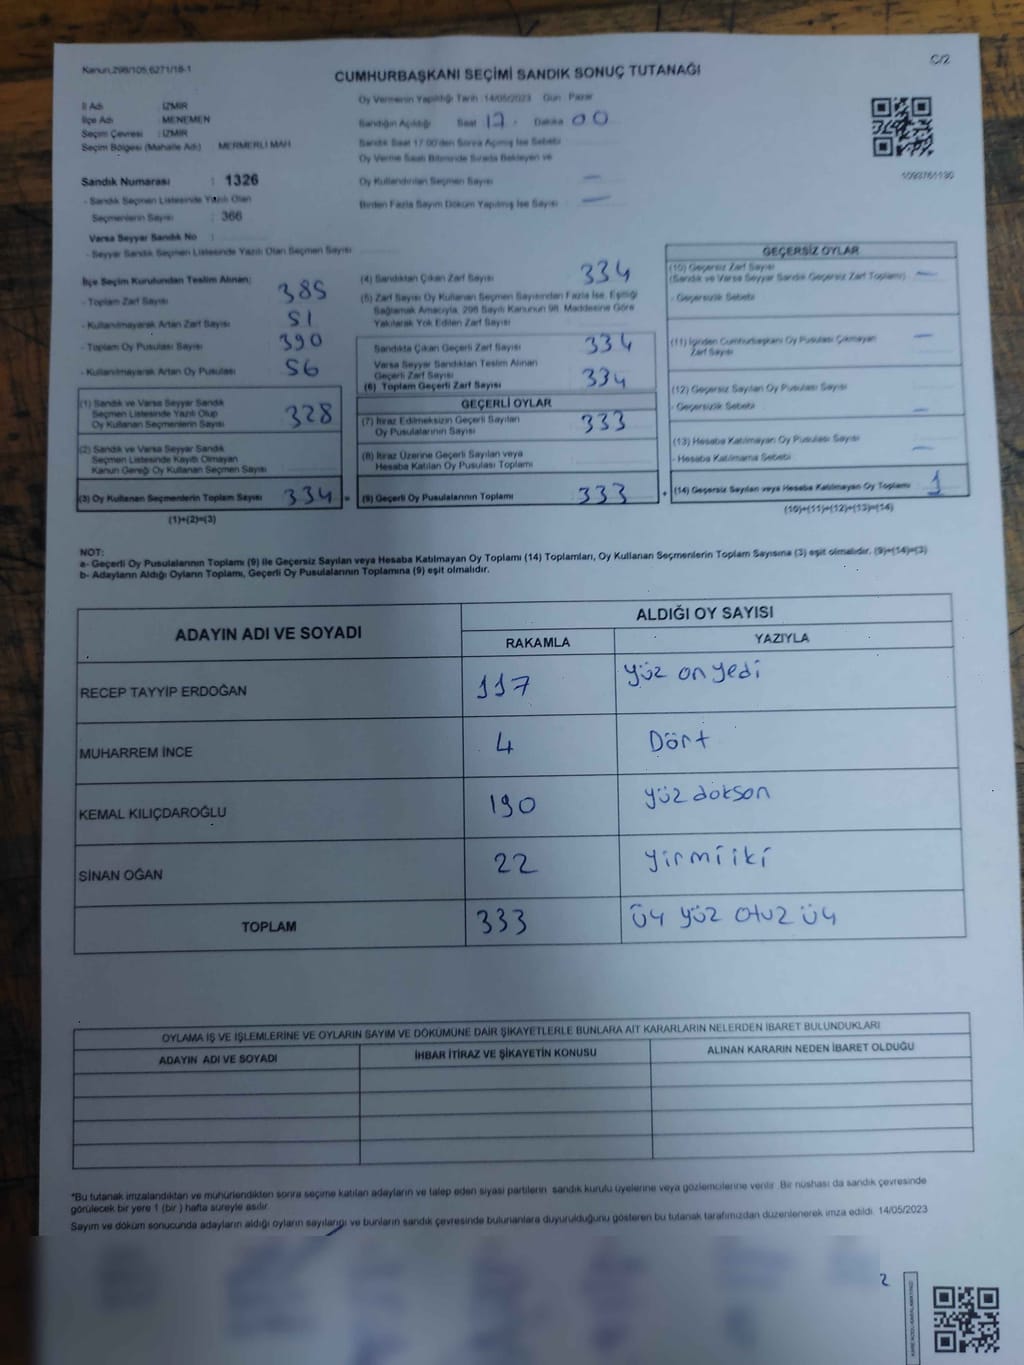 Kanun:298/105,6271/18-1
C/2
CUMHURBAŞKANI SEÇİMİ SANDIK SONUÇ TUTANAĞI
İl Adı : İZMİR
İlçe Adı : MENEMEN
Seçim Çevresi : İZMİR
Seçim Bölgesi (Mahalle Adı) MERMERLİ MAH
Oy Vermenin Yapıldığı Tarih :14/05/2023 Gün : Pazar
Sandığın Açıldığı Saat 17 Dakika 00
Sandık Saat 17:00'den Sonra Açılmış İse Sebebi
Oy Verme Saati Bitiminde Sırada Bekleyen ve
Oy Kullandırılan Seçmen Sayısı —
Birden Fazla Sayım Döküm Yapılmış İse Sayısı —
1093761130
Sandık Numarası : 1326
- Sandık Seçmen Listesinde Yazılı Olan
Seçmenlerin Sayısı : 366
Varsa Seyyar Sandık No :
- Seyyar Sandık Seçmen Listesinde Yazılı Olan Seçmen Sayısı
İlçe Seçim Kurulundan Teslim Alınan;
- Toplam Zarf Sayısı 385
- Kullanılmayarak Artan Zarf Sayısı 51
- Toplam Oy Pusulası Sayısı 390
- Kullanılmayarak Artan Oy Pusulası 56
(1) Sandık ve Varsa Seyyar Sandık
Seçmen Listesinde Yazılı Olup
Oy Kullanan Seçmenlerin Sayısı 328
(2) Sandık ve Varsa Seyyar Sandık
Seçmen Listesinde Kayıtlı Olmayan
Kanun Gereği Oy Kullanan Seçmen Sayısı
(3) Oy Kullanan Seçmenlerin Toplam Sayısı 334 =
(1)+(2)=(3)
(4) Sandıktan Çıkan Zarf Sayısı 334
(5) Zarf Sayısı Oy Kullanan Seçmen Sayısından Fazla İse, Eşitliği
Sağlamak Amacıyla, 298 Sayılı Kanunun 98. Maddesine Göre
Yakılarak Yok Edilen Zarf Sayısı
Sandıkta Çıkan Geçerli Zarf Sayısı 334
Varsa Seyyar Sandıktan Teslim Alınan
Geçerli Zarf Sayısı
(6) Toplam Geçerli Zarf Sayısı 334
GEÇERLİ OYLAR
(7) İtiraz Edilmeksizin Geçerli Sayılan
Oy Pusulalarının Sayısı 333
(8) İtiraz Üzerine Geçerli Sayılan veya
Hesaba Katılan Oy Pusulası Toplamı
(9) Geçerli Oy Pusulalarının Toplamı 333 +
GEÇERSİZ OYLAR
(10) Geçersiz Zarf Sayısı
(Sandık ve Varsa Seyyar Sandık Geçersiz Zarf Toplamı) —
- Geçersizlik Sebebi
(11) İçinden Cumhurbaşkanı Oy Pusulası Çıkmayan
Zarf Sayısı —
(12) Geçersiz Sayılan Oy Pusulası Sayısı
- Geçersizlik Sebebi —
(13) Hesaba Katılmayan Oy Pusulası Sayısı —
- Hesaba Katılmama Sebebi
(14) Geçersiz Sayılan veya Hesaba Katılmayan Oy Toplamı 1
(10)+(11)+(12)+(13)=(14)
NOT:
a- Geçerli Oy Pusulalarının Toplamı (9) ile Geçersiz Sayılan veya Hesaba Katılmayan Oy Toplamı (14) Toplamları, Oy Kullanan Seçmenlerin Toplam Sayısına (3) eşit olmalıdır. (9)+(14)=(3)
b- Adayların Aldığı Oyların Toplamı, Geçerli Oy Pusulalarının Toplamına (9) eşit olmalıdır.
ADAYIN ADI VE SOYADI
ALDIĞI OY SAYISI
RAKAMLA YAZIYLA
RECEP TAYYİP ERDOĞAN 117 yüz on yedi
MUHARREM İNCE 4 Dört
KEMAL KILIÇDAROĞLU 190 yüz dokson
SİNAN OĞAN 22 yirmi iki
TOPLAM 333 üç yüz otuz üç
OYLAMA İŞ VE İŞLEMLERİNE VE OYLARIN SAYIM VE DÖKÜMÜNE DAİR ŞİKAYETLERLE BUNLARA AİT KARARLARIN NELERDEN İBARET BULUNDUKLARI
ADAYIN ADI VE SOYADI İHBAR İTİRAZ VE ŞİKAYETİN KONUSU ALINAN KARARIN NEDEN İBARET OLDUĞU
*Bu tutanak imzalandıktan ve mühürlendikten sonra seçime katılan adayların ve talep eden siyasi partilerin sandık kurulu üyelerine veya gözlemcilerine verilir. Bir nüshası da sandık çevresinde
görülecek bir yere 1 (bir ) hafta süreyle asılır.
Sayım ve döküm sonucunda adayların aldığı oyların sayılarını ve bunların sandık çevresinde bulunanlara duyurulduğunu gösteren bu tutanak tarafımızdan düzenlenerek imza edildi. 14/05/2023
2